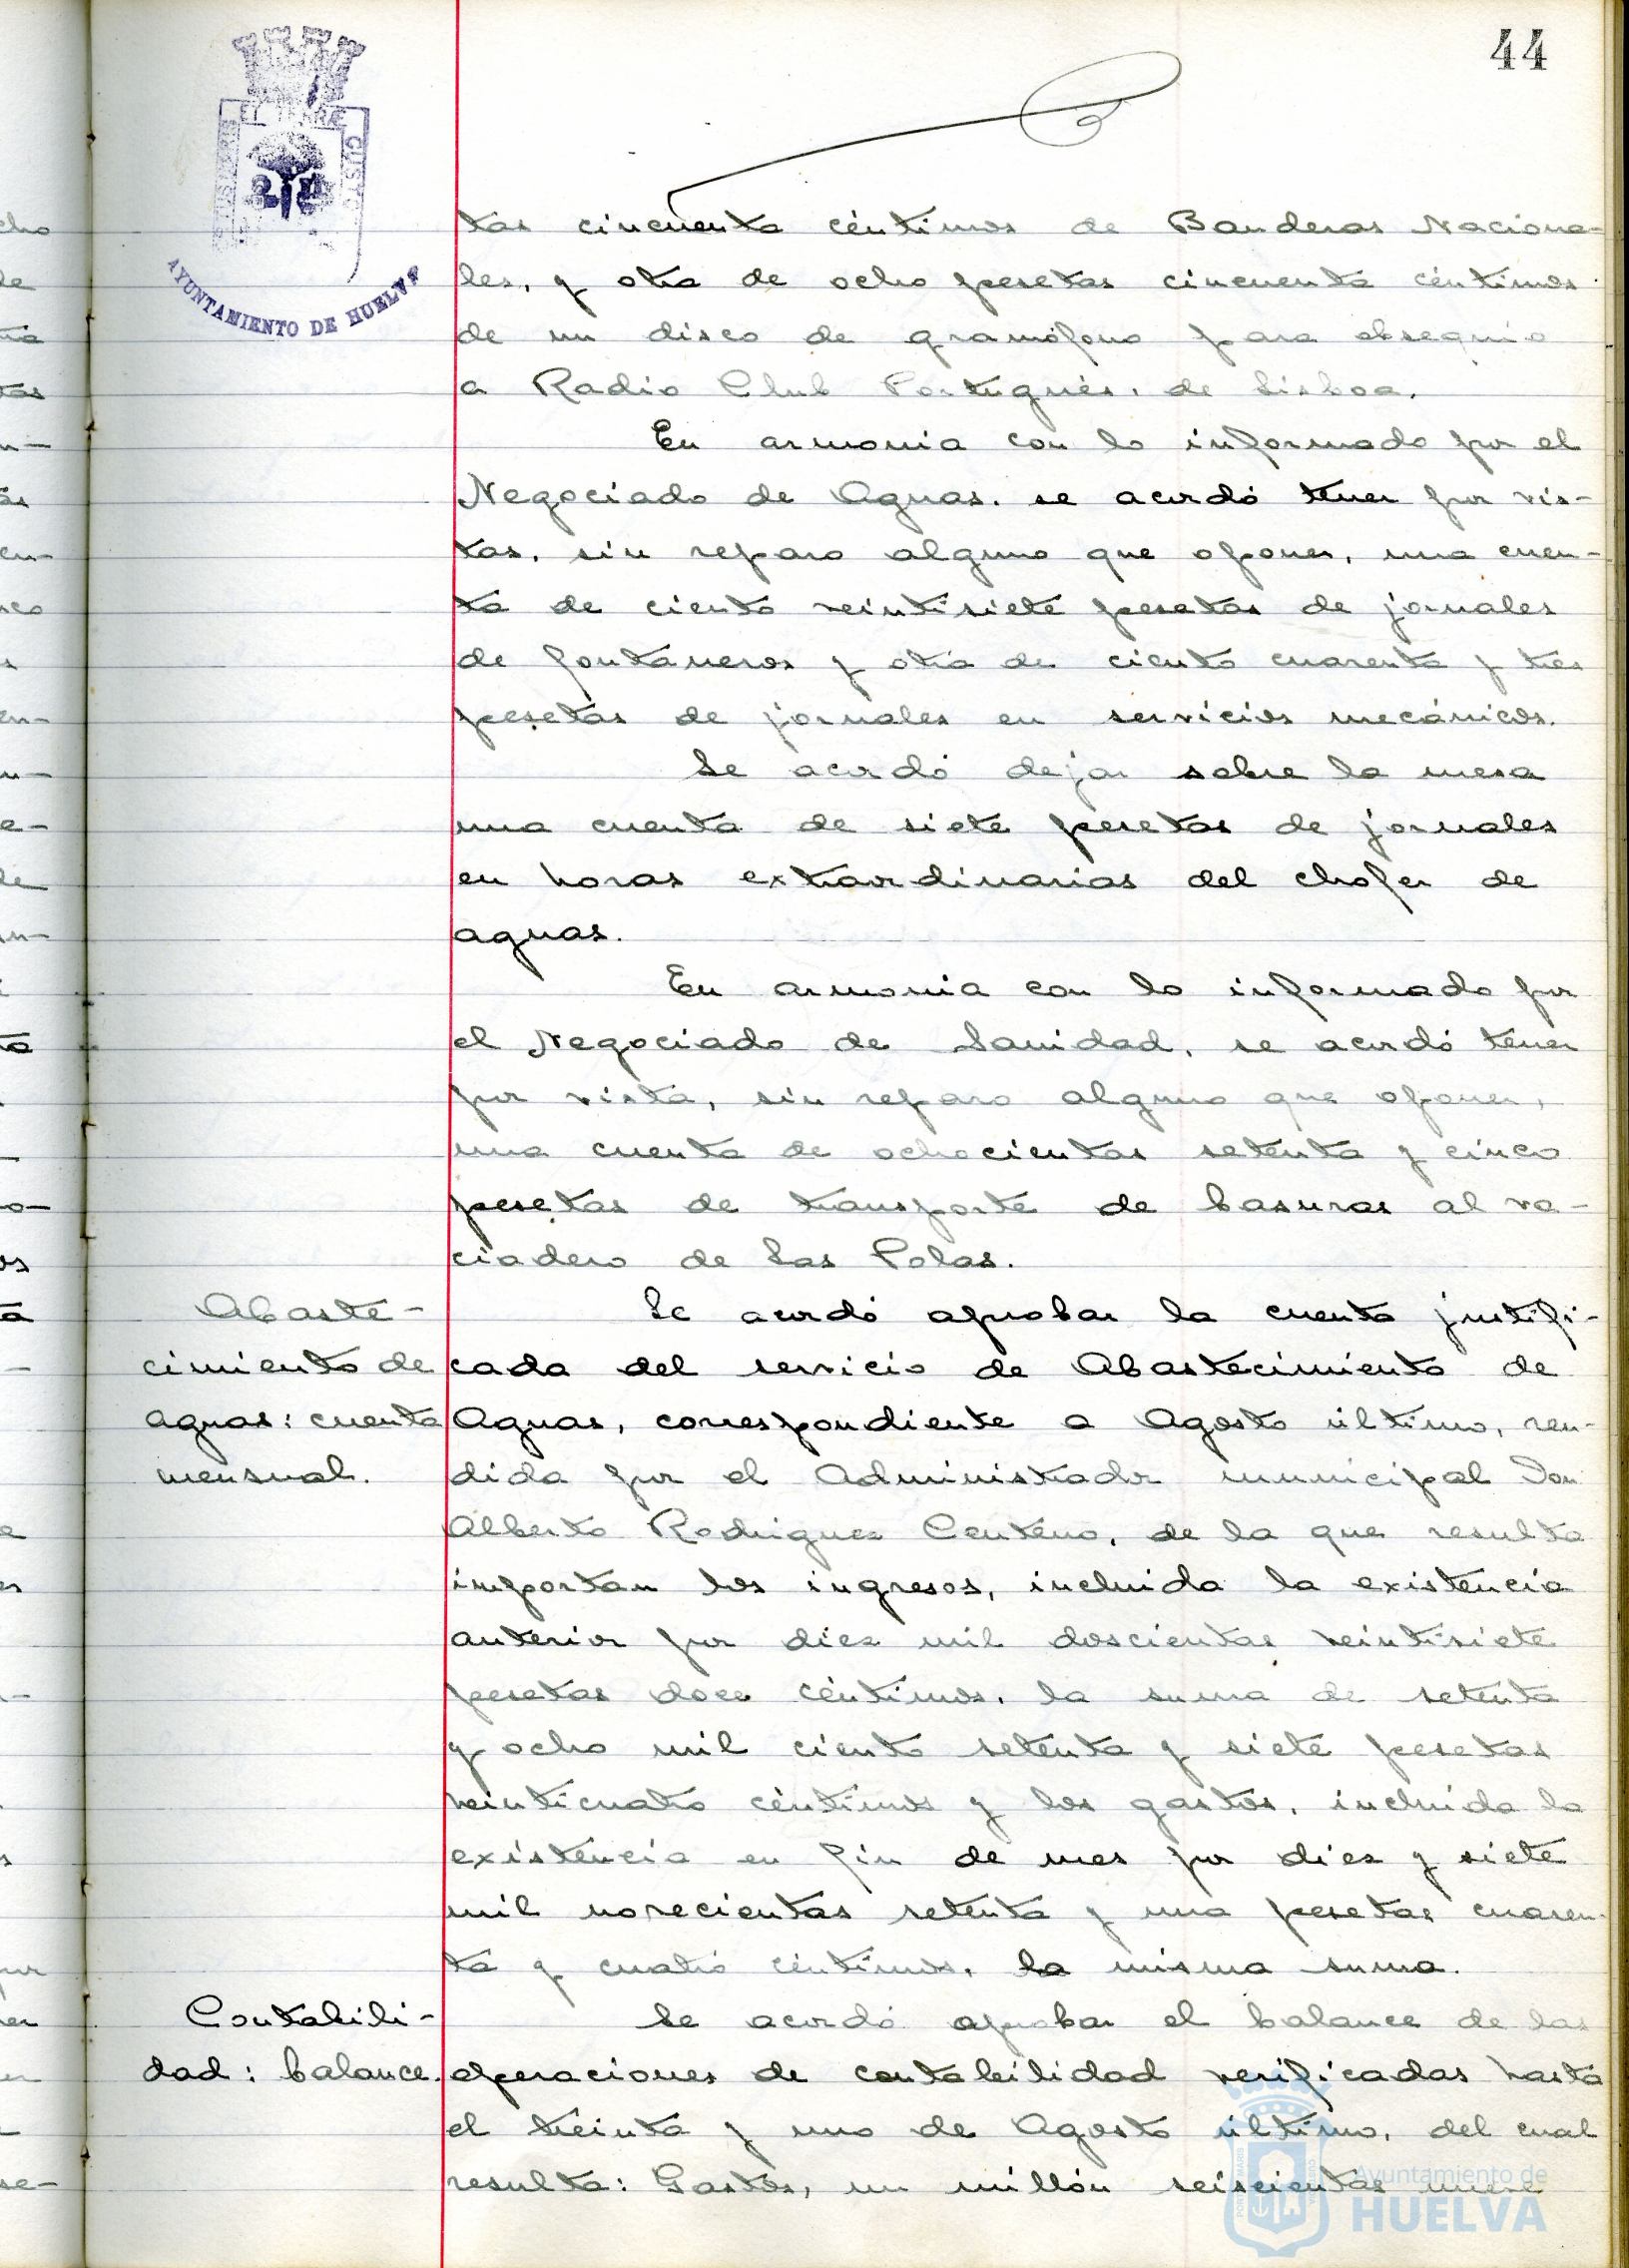 44
EL TERRÆ
CUSTO
AYUNTAMIENTO DE HUELVA
tas cincuenta céntimos de Banderas Naciona-
les, y otra de ocho pesetas cincuenta céntimos
de un disco de gramófono para obsequio
a Radio Club Portugués, de Lisboa.
En armonia con lo informado por el
Negociado de Aguas, se acordó tener por vis-
tas, sin reparo alguno que oponer, una cuen-
ta de ciento veintisiete pesetas de jornales
de fontaneros y otra de ciento cuarenta y tres
pesetas de jornales en servicios mecánicos.
Se acordó dejar sobre la mesa
una cuenta de siete pesetas de jornales
en horas extraordinarias del chofer de
aguas.
En armonia con lo informado por
el Negociado de Sanidad, se acordó tener
por vista, sin reparo alguno que oponer,
una cuenta de ochocientas setenta y cinco
pesetas de transporte de basuras al va-
ciadero de Las Polas.
Abaste-
cimiento de
aguas: cuenta
mensual.
Se acordó aprobar la cuenta justifi-
cada del servicio de Abastecimiento de
Aguas, correspondiente a Agosto último, ren-
dida por el Administrador municipal Don
Alberto Rodriguez Centeno, de la que resulta
importan los ingresos, incluida la existencia
anterior por diez mil doscientas veintisiete
pesetas doce céntimos, la suma de setenta
y ocho mil ciento setenta y siete pesetas
veinticuatro céntimos y los gastos, incluida la
existencia en fin de mes por diez y siete
mil novecientas setenta y una pesetas cuaren-
ta y cuatro céntimos, la misma suma.
Contabili-
dad: balance.
Se acordó aprobar el balance de las
operaciones de contabilidad verificadas hasta
el treinta y uno de Agosto último, del cual
resulta: Gastos, un millón seiscientas nueve
Ayuntamiento de
HUELVA